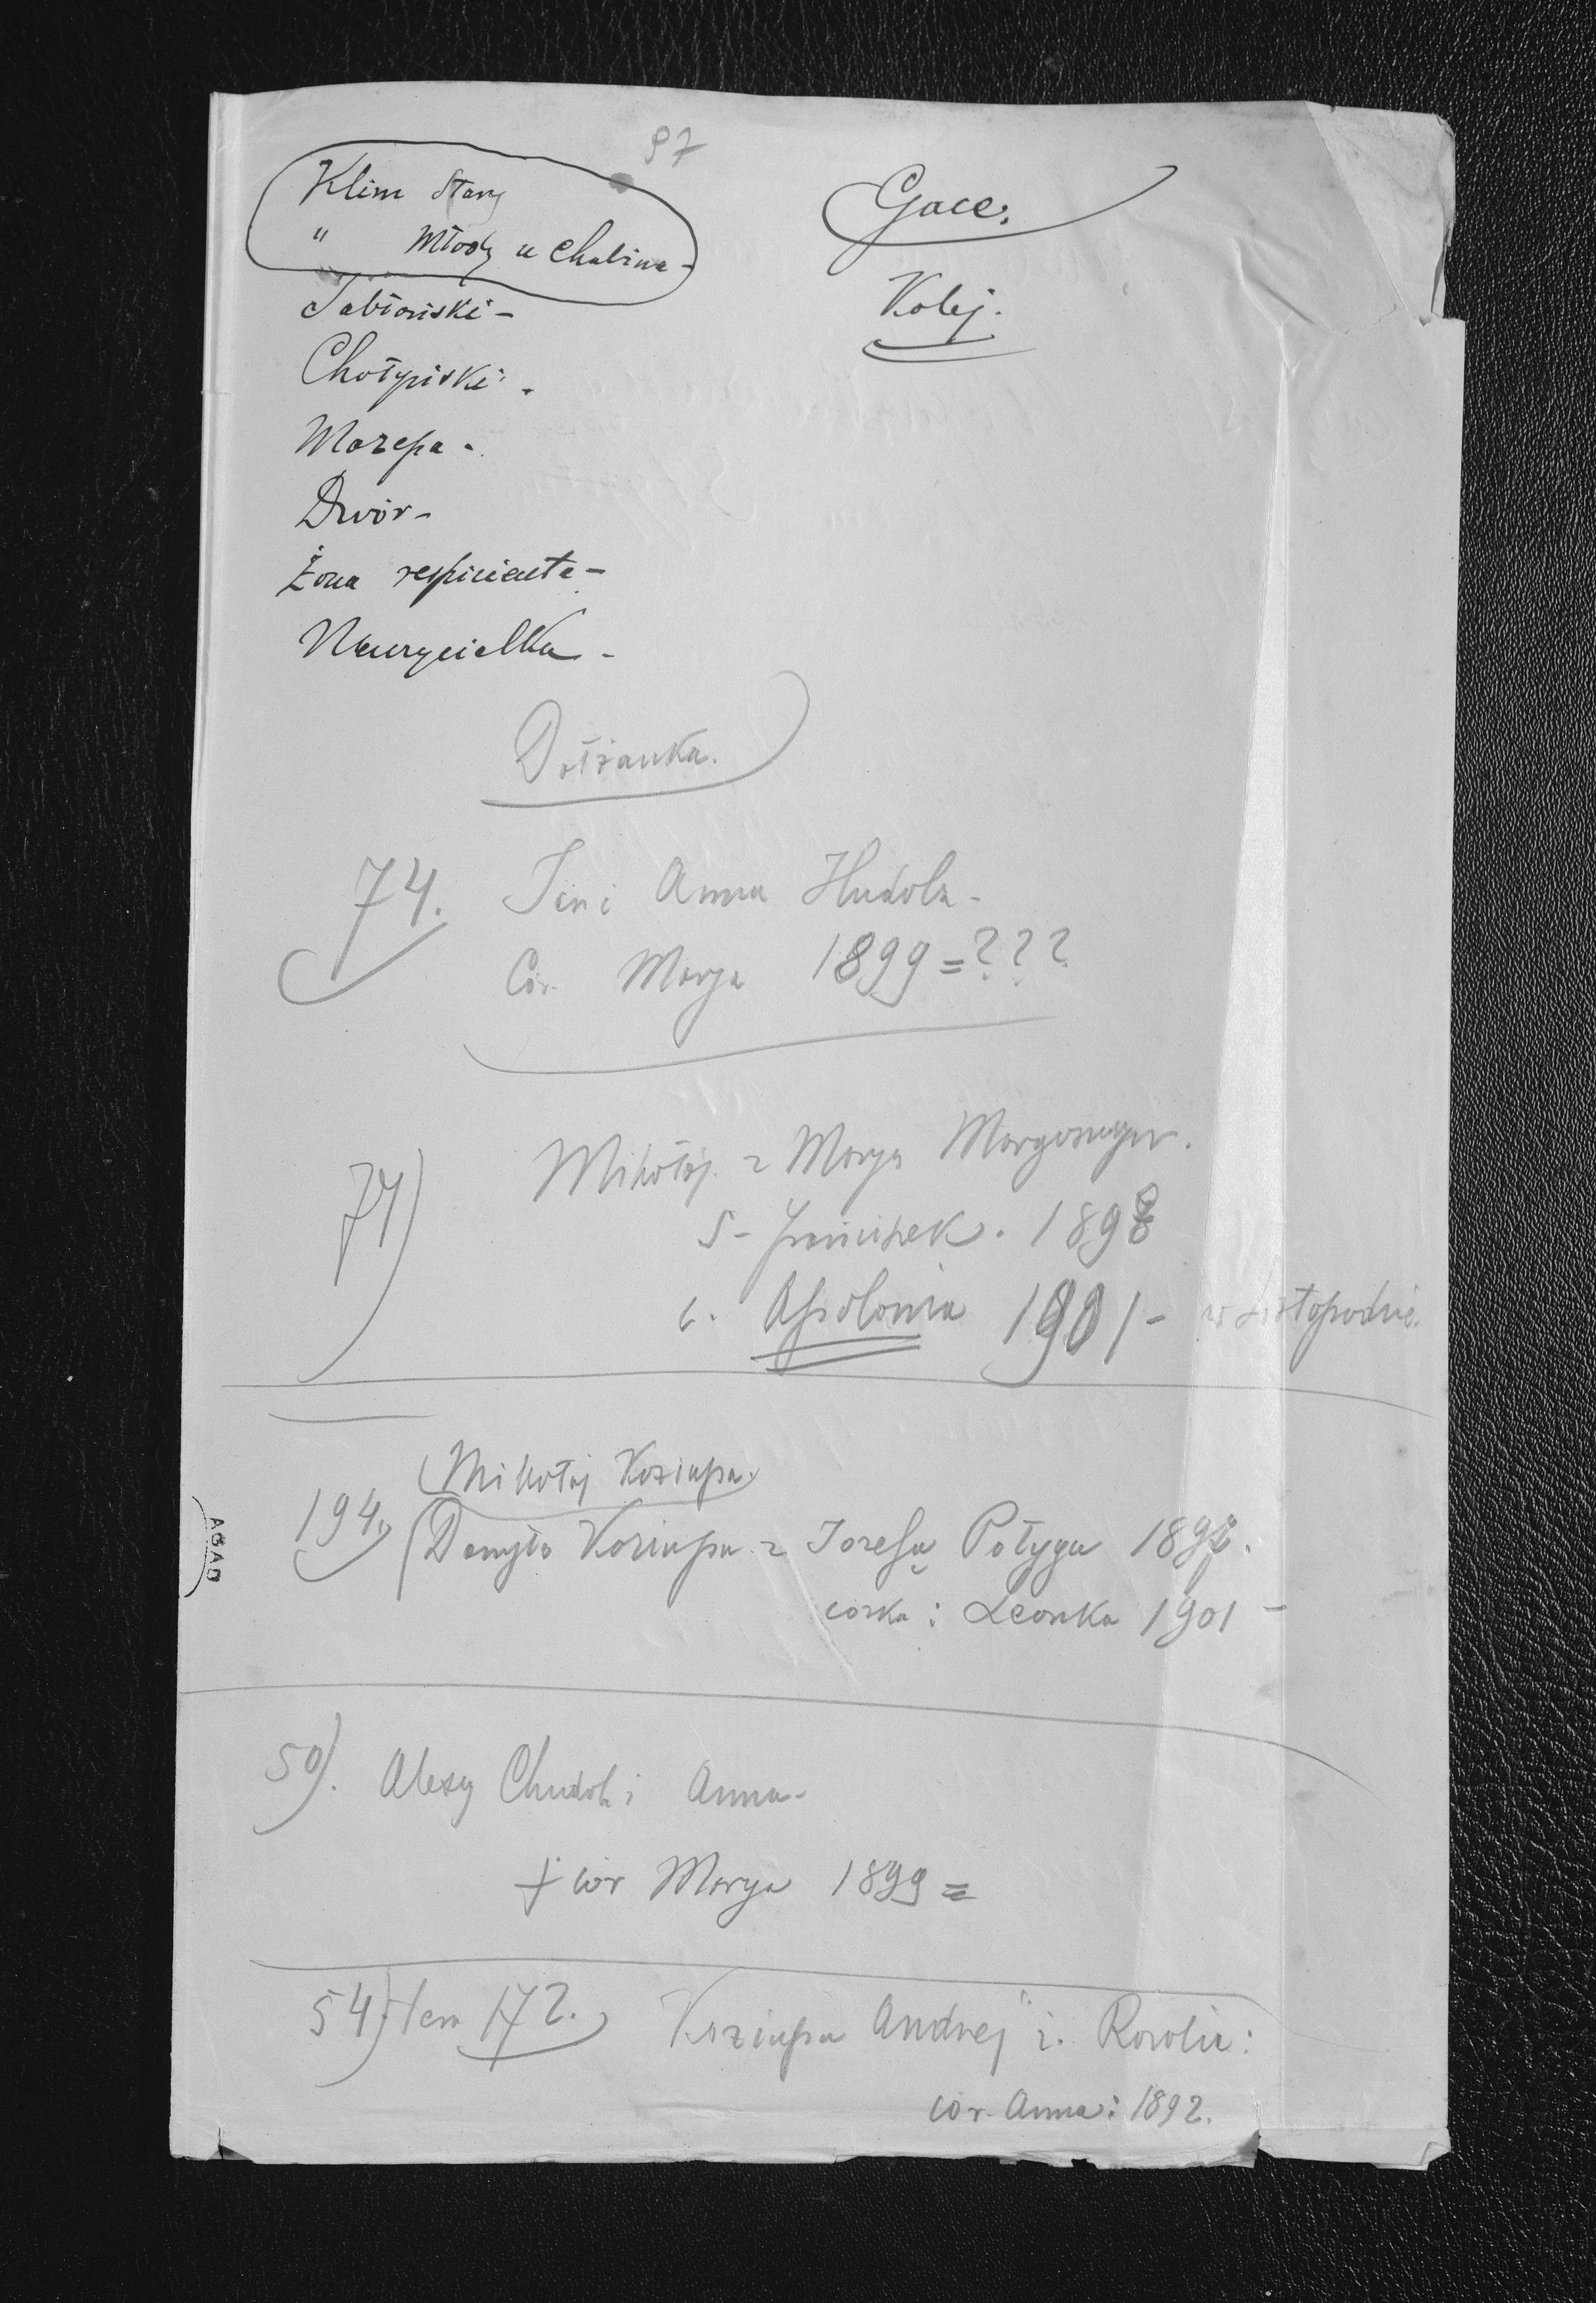 97
Klim Stary
" Młody u Chabina -
Jabłoński -
Chołyński -
Mazepa -
Dwór -
Żona respicienta -
Nauczycielka -
Gace.
Kolej.
Dołżanka.
74. Jan i Anna Hudola -
Cór. Marya 1899 = ???
74) Mikołaj z Marya
S - Franciszek. 1898
c. Apolonia 1901 - w Listopadzie.
Mikołaj Koziupa.
194. Danyło Koziupa z Józefą Połyga 189
córka: Leonka 1901 -
AGAD
50). Alexy Chudoł i Anna -
† cór Marya 1899 =
54) 172. Koziupa Andrej i. Rozolia:
cór. Anna: 1892.